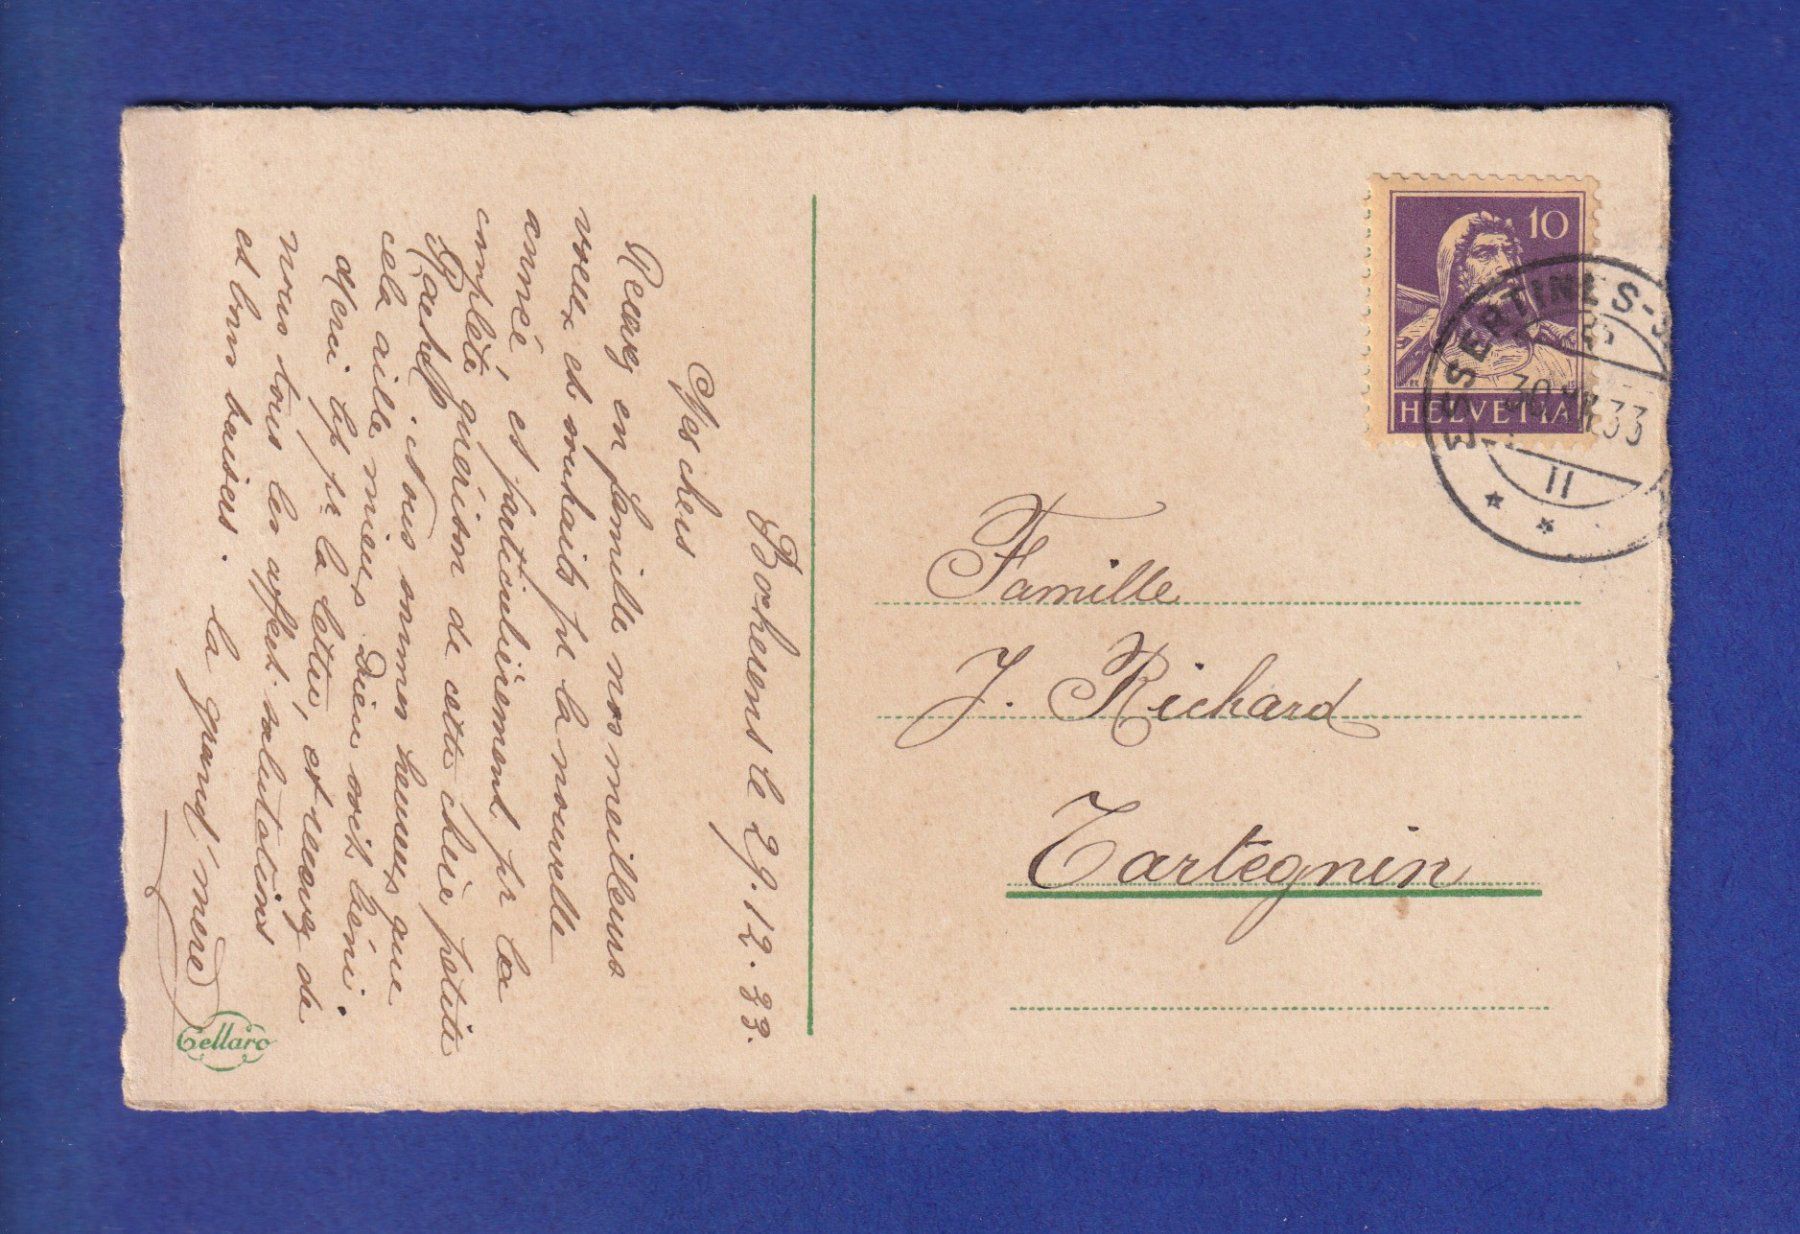 Bocheens le 29.12.33.
Mes chers
Recevez en famille nos meilleurs
voeux et souhaits pr la nouvelle
année, et particulièrement pr la
complète guérison de cette chère petite
Nous sommes heureux que
cela aille mieux Dieu soit béni.
Merci bp pr la lettre, et recevez de
nous tous les affect. salutations
et bons baisers.
La grand'mère
Cellaro
10
HELVETIA
ESSERTINES-S
30.XII.33
11
Famille
J. Richard
Tartegnin